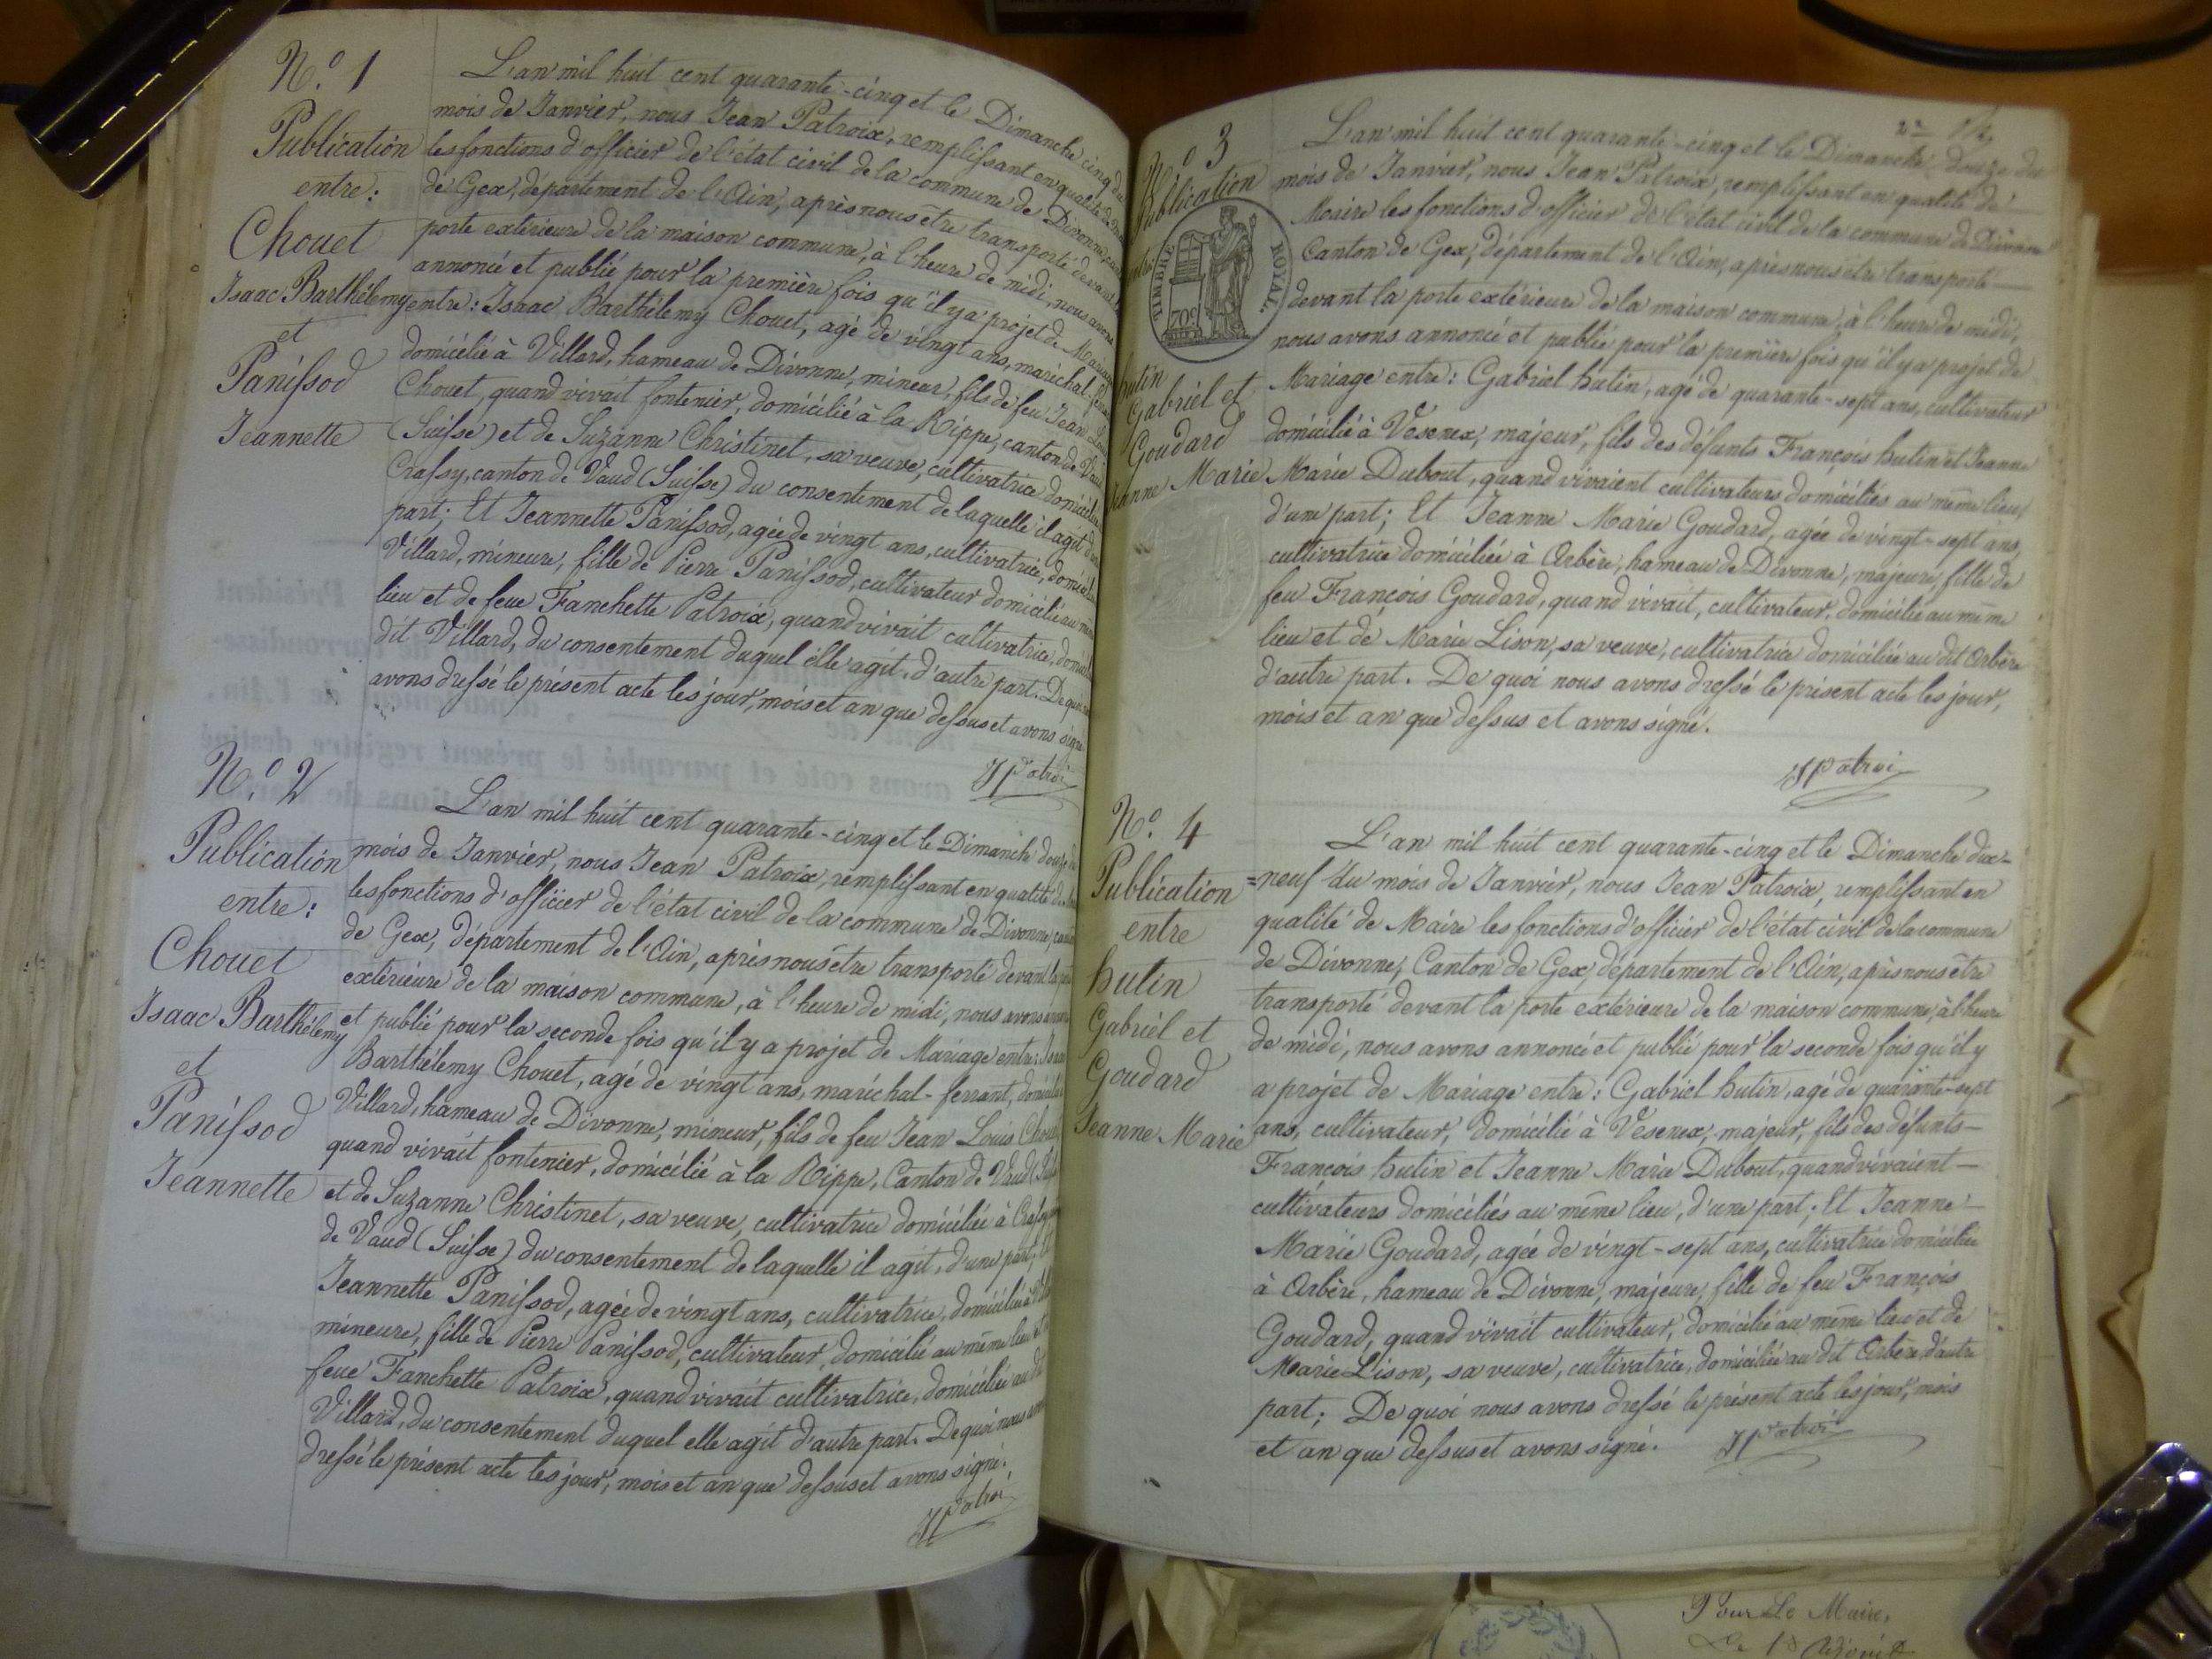 N.º 1
Publication
entre:
Chouet
Isaac Barthélemy
et
Panissod
Jeannette
L'an mil huit cent quarante-cinq et le Dimanche cinq du
mois de Janvier, nous Jean Patroix, remplissant en qualité de
les fonctions d'officier de l'état civil de la commune de Divonne,
de Gex, département de l'Ain, après nous être transporté devant la
porte extérieure de la maison commune, à l'heure de midi, nous avons
annoncé et publié pour la première fois qu'il y a projet de Mariage
entre: Isaac Barthélemy Chouet, agé de vingt ans, maréchal-ferrant
domicilié à Villard, hameau de Divonne, mineur, fils de feu Jean Louis
Chouet, quand vivait fontenier, domicilié à la Rippe, canton de Vaud
(Suisse) et de Suzanne Christinet, sa veuve, cultivatrice domiciliée
Crassy, canton de Vaud (Suisse) du consentement de laquelle il agit d'une
part; Et Jeannette Panissod, agée de vingt ans, cultivatrice, domiciliée
Villard, mineure, fille de Pierre Panissod, cultivateur domicilié au même
lieu et de feue Fanchette Patroix, quand vivait cultivatrice, domiciliée
dit Villard, du consentement duquel elle agit, d'autre part. De quoi nous
avons dressé le présent acte les jour, mois et an que dessus et avons signé.
JPatroi
N.º 2
Publication
entre:
Chouet
Isaac Barthélemy
et
Panissod
Jeannette
L'an mil huit cent quarante-cinq et le Dimanche douze du
mois de Janvier, nous Jean Patroix, remplissant en qualité de
les fonctions d'officier de l'état civil de la commune de Divonne, canton
de Gex, département de l'Ain, après nous être transporté devant la porte
extérieure de la maison commune, à l'heure de midi, nous avons annoncé
et publié pour la seconde fois qu'il y a projet de Mariage entre: Isaac
Barthélemy Chouet, agé de vingt ans, maréchal-ferrant, domicilié
Villard, hameau de Divonne, mineur, fils de feu Jean Louis Chouet
quand vivait fontenier, domicilié à la Rippe, Canton de Vaud
et de Suzanne Christinet, sa veuve, cultivatrice domiciliée à Crassy
de Vaud (Suisse) du consentement de laquelle il agit, d'une part; Et
Jeannette Panissod, agée de vingt ans, cultivatrice, domiciliée à
mineure, fille de Pierre Panissod, cultivateur, domicilié au même lieu et
feue Fanchette Patroix, quand vivait cultivatrice, domiciliée au dit
Villard, du consentement duquel elle agit d'autre part. De quoi nous avons
dressé le présent acte les jour, mois et an que dessus et avons signé.
JPatroi
N.º 3
Publication
TIMBRE ROYAL
70c
hutin
Gabriel et
Goudard
Jeanne Marie
L'an mil huit cent quarante-cinq et le Dimanche douze du
mois de Janvier, nous Jean Patroix, remplissant en qualité de
Maire les fonctions d'officier de l'état civil de la commune de Divonne
Canton de Gex, département de l'Ain, après nous être transporté
devant la porte extérieure de la maison commune, à l'heure de midi,
nous avons annoncé et publié pour la première fois qu'il y a projet de
Mariage entre: Gabriel hutin, agé de quarante-sept ans, cultivateur
domicilié à Vesenex, majeur, fils des défunts François hutin et Jeanne
Marie Dubout, quand vivaient cultivateurs domiciliés au même lieu,
d'une part; Et Jeanne Marie Goudard, agée de vingt-sept ans,
cultivatrice domiciliée à Arbère, hameau de Divonne, majeure, fille de
feu François Goudard, quand vivait, cultivateur, domicilié au même
lieu et de Marie Lison, sa veuve, cultivatrice domiciliée au dit Arbère
d'autre part. De quoi nous avons dressé le présent acte les jour,
mois et an que dessus et avons signé.
JPatroi
N.º 4
Publication
entre
hutin
Gabriel et
Goudard
Jeanne Marie
L'an mil huit cent quarante-cinq et le Dimanche dix-
=neuf du mois de Janvier, nous Jean Patroix, remplissant en
qualité de Maire les fonctions d'officier de l'état civil de la commune
de Divonne, Canton de Gex, département de l'Ain, après nous être
transporté devant la porte extérieure de la maison commune, à l'heure
de midi, nous avons annoncé et publié pour la seconde fois qu'il y
a projet de Mariage entre: Gabriel hutin, agé de quarante-sept
ans, cultivateur, domicilié à Vesenex, majeur, fils des défunts
François hutin et Jeanne Marie Dubout, quand vivaient
cultivateurs domiciliés au même lieu, d'une part; Et Jeanne
Marie Goudard, agée de vingt-sept ans, cultivatrice domiciliée
à Arbère, hameau de Divonne, majeure, fille de feu François
Goudard, quand vivait cultivateur, domicilié au même lieu et de
Marie Lison, sa veuve, cultivatrice, domiciliée au dit Arbère, d'autre
part; De quoi nous avons dressé le présent acte les jour, mois
et an que dessus et avons signé.
JPatroi
Pour Le Maire,